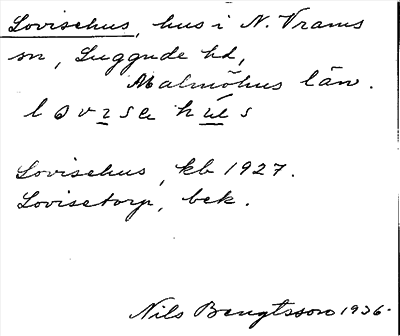 Lovisehus, hus i N. Vrams
sn, Luggude hd,
Malmöhus län.
Lovisehus, kb 1927.
Lovisetorp, bek.
Nils Bengtsson 1936.